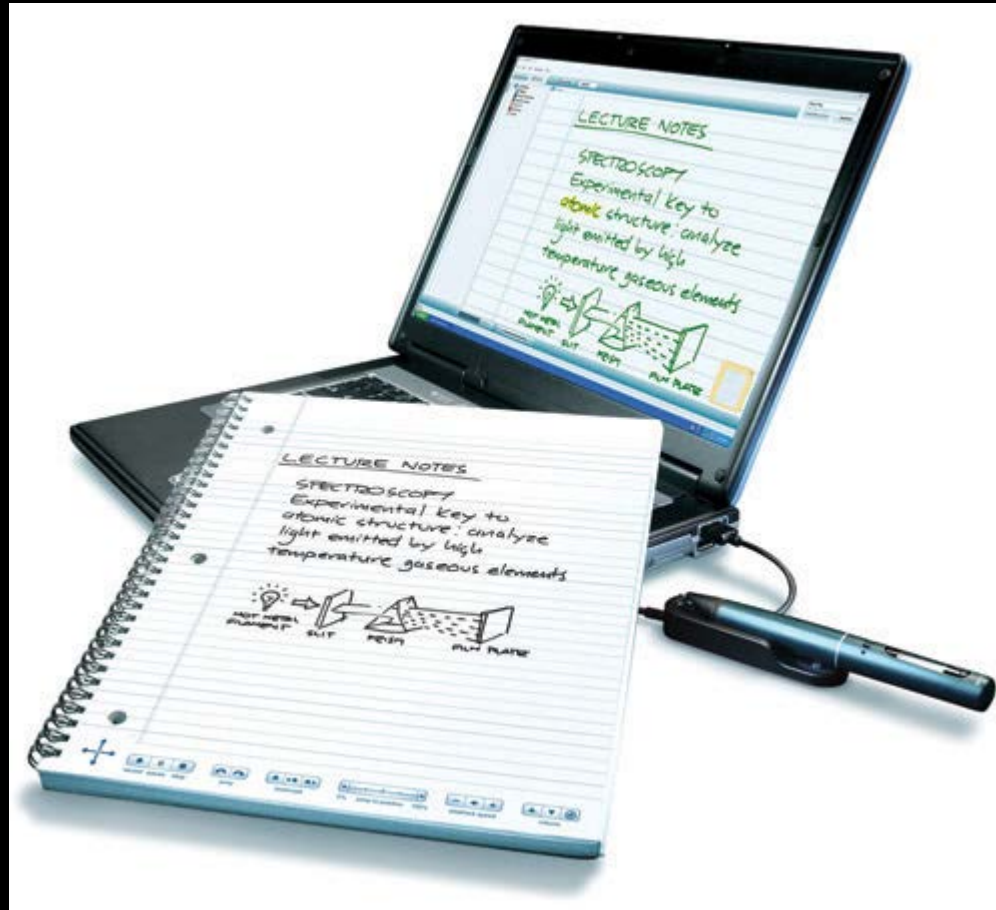 LECTURE NOTES
SPECTROSCOPY
Experimental Key to
atomic structure: analyze
light emitted by high
temperature gaseous elements
HOT METAL
FILAMENT
SLIT
PRISM
FILM PLATE
LECTURE NOTES
SPECTROSCOPY
Experimental Key to
atomic structure: analyze
light emitted by high
temperature gaseous elements
HOT METAL
FILAMENT
SLIT
PRISM
FILM PLATE